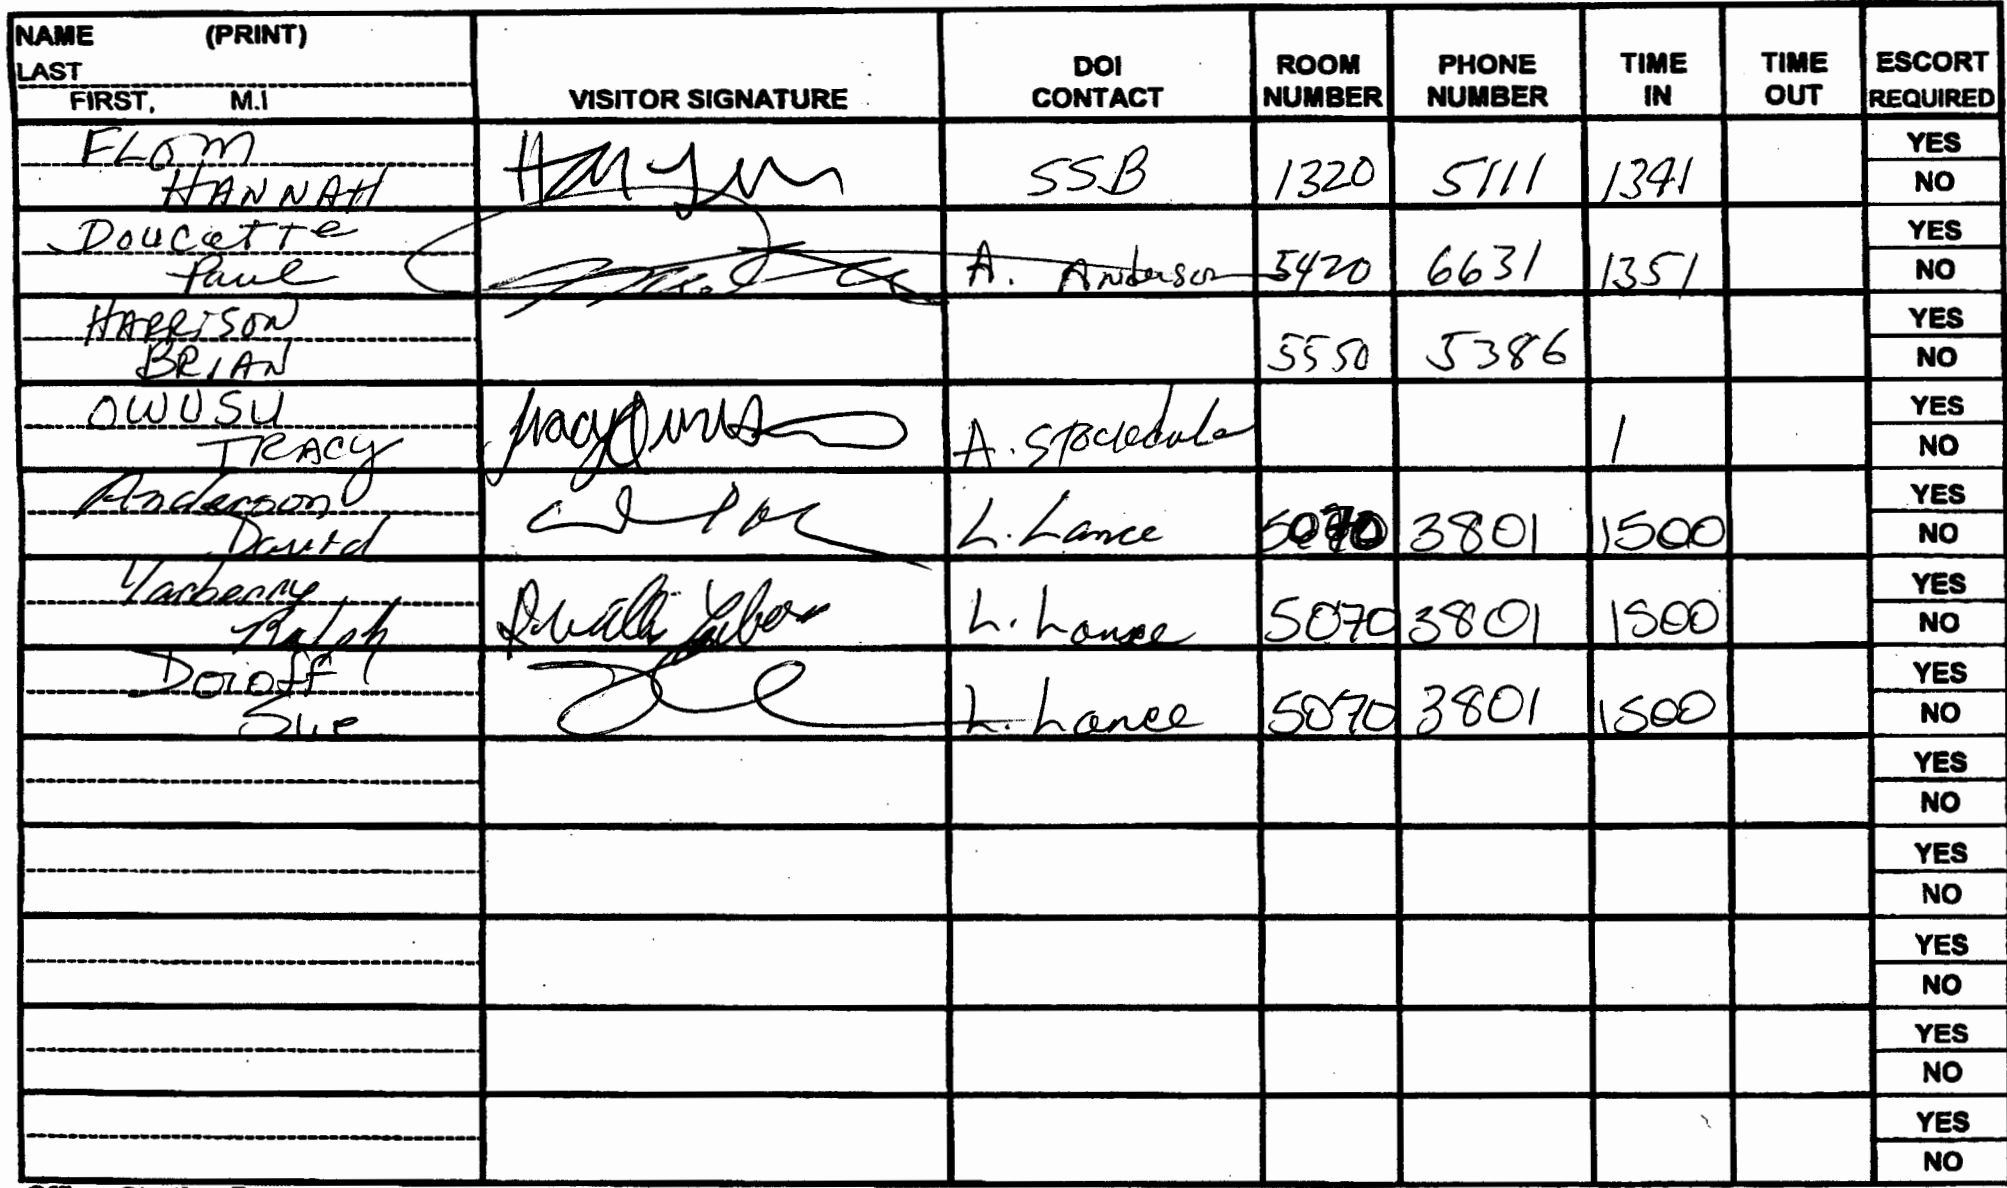 NAME (PRINT)
LAST
FIRST, M.I
VISITOR SIGNATURE
DOI CONTACT
ROOM NUMBER
PHONE NUMBER
TIME IN
TIME OUT
ESCORT REQUIRED
FLOM
HANNAH
SSB 1320 5111 1341 YES
NO
Doucette
Paul
A. Anderson 5420 6631 1351 YES
NO
HARRISON
BRIAN
5550 5386 YES
NO
OWUSU
TRACY
A. 1 YES
NO
Anderson
David
L. Lance 5070 3801 1500 YES
NO
Yarberry
Ralph
L. Lance 5070 3801 1500 YES
NO
Doroff
Sue
L. Lance 5070 3801 1500 YES
NO
YES
NO
YES
NO
YES
NO
YES
NO
YES
NO